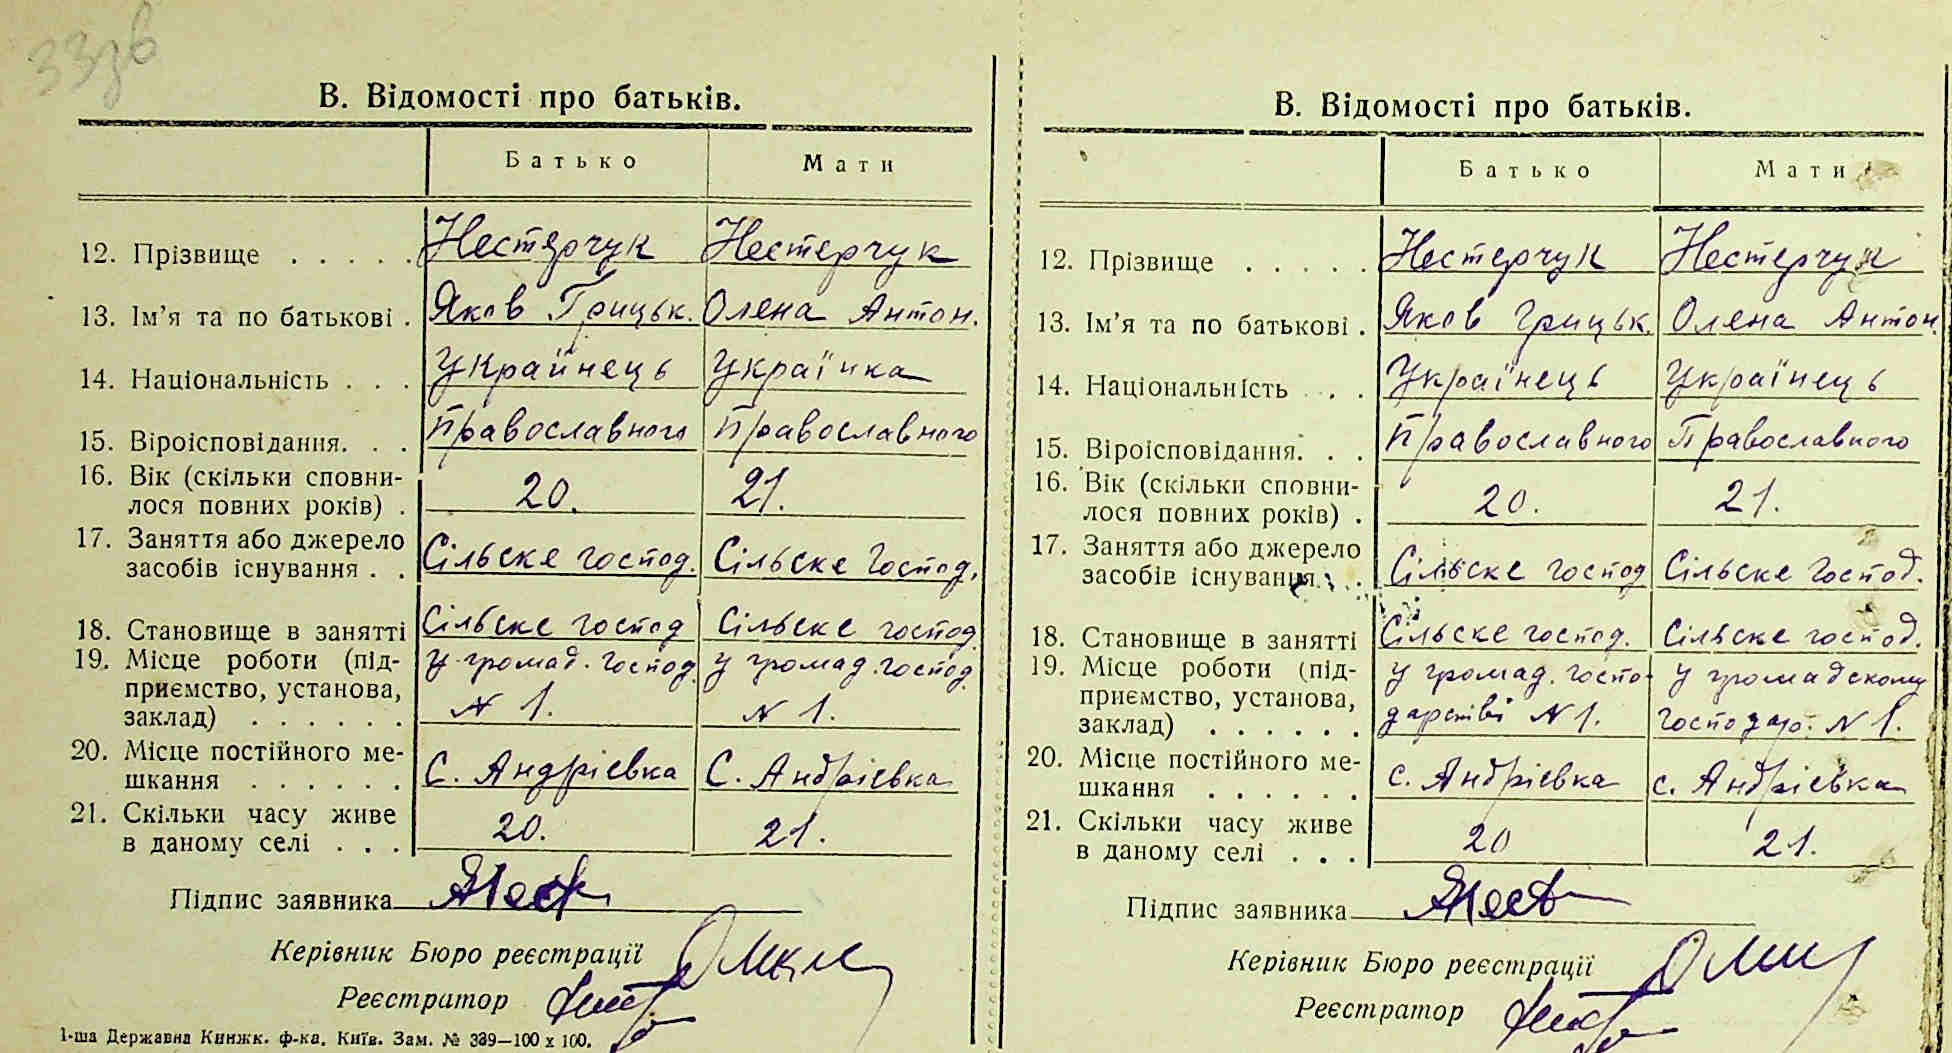 33зв
В. Відомості про батьків.
Батько Мати
12. Прізвище . . . . . Нестерчук Нестерчук
13. Ім'я та по батькові . Яков Грицьк. Олена Антон.
14. Національність . . . Українець Українка
15. Віроісповідання. . . Православного Православного
16. Вік (скільки сповни-
лося повних років) . 20. 21.
17. Заняття або джерело
засобів існування . . Сільске господ. Сільске господ.
18. Становище в занятті Сільске господ Сільске господ.
19. Місце роботи (під- у громад. господ. у громад. господ.
приємство, установа,
заклад) . . . . . . N 1. N 1.
20. Місце постійного ме-
шкання . . . . . . С. Андрієвка С. Андрієвка
21. Скільки часу живе
в даному селі . . . 20. 21.
Підпис заявника
Керівник Бюро реєстрації
Реєстратор
1-ша Державна Книжк. ф-ка. Київ. Зам. № 339—100 х 100.
В. Відомості про батьків.
Батько Мати
12. Прізвище . . . . . Нестерчук Нестерчук
13. Ім'я та по батькові . Яков Грицьк. Олена Антон.
14. Національність . . . Українець Українець
15. Віроісповідання. . . Православного Православного
16. Вік (скільки сповни-
лося повних років) . 20. 21.
17. Заняття або джерело
засобів існування. . . Сільске господ Сільске господ.
18. Становище в занятті Сільске господ. Сільске господ.
19. Місце роботи (під- у громад. госпо- у громадскому
приємство, установа,
заклад) . . . . . . дарстві N 1. господар. N 1.
20. Місце постійного ме-
шкання . . . . . . с. Андрієвка с. Андрієвка
21. Скільки часу живе
в даному селі . . . 20 21.
Підпис заявника
Керівник Бюро реєстрації
Реєстратор